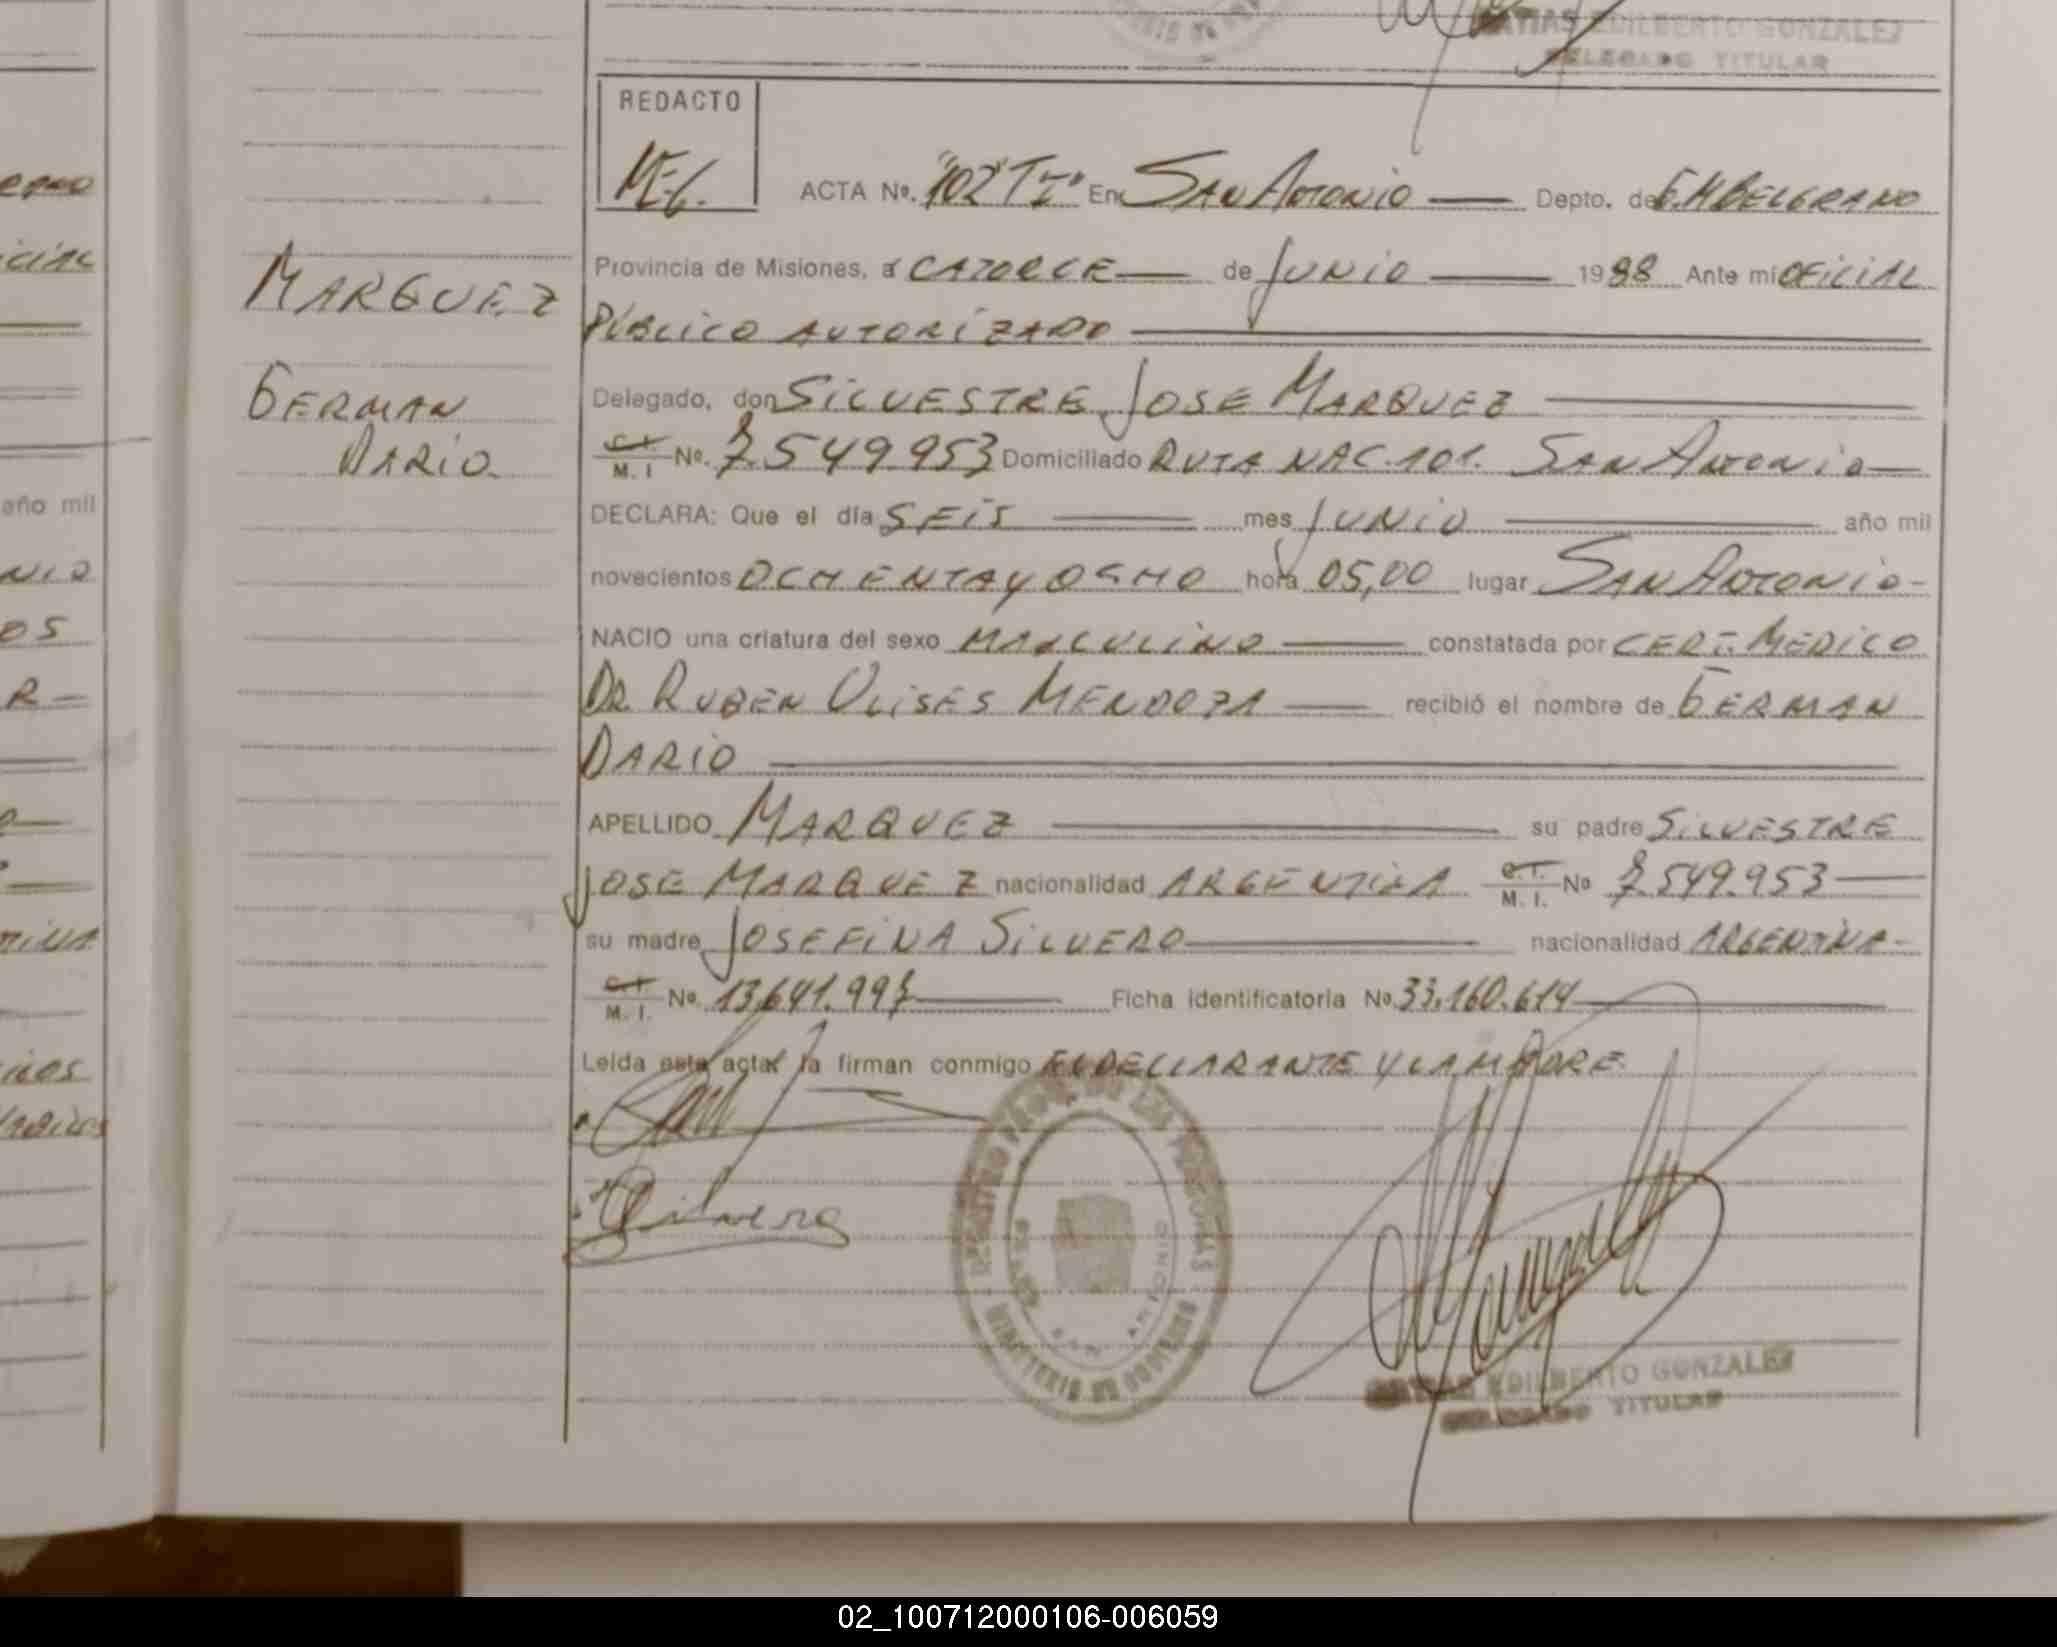 MATIAS EDILBERTO GONZALEZ
DELEGADO TITULAR
REDACTO
MEG.
ACTA Nº. "102" T I" En SAN ANTONIO Depto. de G.M BELGRANO
Provincia de Misiones, a CATORCE de JUNIO 1988 Ante mi OFICIAL
PÚBLICO AUTORIZADO
MARQUEZ
GERMAN
DARIO.
Delegado, don SILVESTRE JOSE MARQUEZ
C.I. M. I Nº. 7.549.953 Domiciliado RUTA NAC. 101. SAN ANTONIO
DECLARA: Que el día SEIS mes JUNIO año mil
novecientos OCHENTA Y OCHO hora 05,00 lugar SAN ANTONIO-
NACIO una criatura del sexo MASCULINO constatada por CERT. MEDICO
DR. RUBEN ULISES MENDOZA recibió el nombre de GERMAN
DARIO
APELLIDO MARQUEZ su padre SILVESTRE
JOSE MARQUEZ nacionalidad ARGENTINA C.I. M. I. Nº 7.549.953
su madre JOSEFINA SILVERO nacionalidad ARGENTINA-
C.I. M. I. Nº. 13.641.997 Ficha identificatoria Nº 33.160.614
Leída esta acta la firman conmigo EL DECLARANTE Y LA MADRE.
Silvero
REGISTRO PROV. DE LAS PERSONAS
SAN ANTONIO
MINISTERIO DE GOBIERNO
MATIAS EDILBERTO GONZALEZ
DELEGADO TITULAR
año mil
02_100712000106-006059